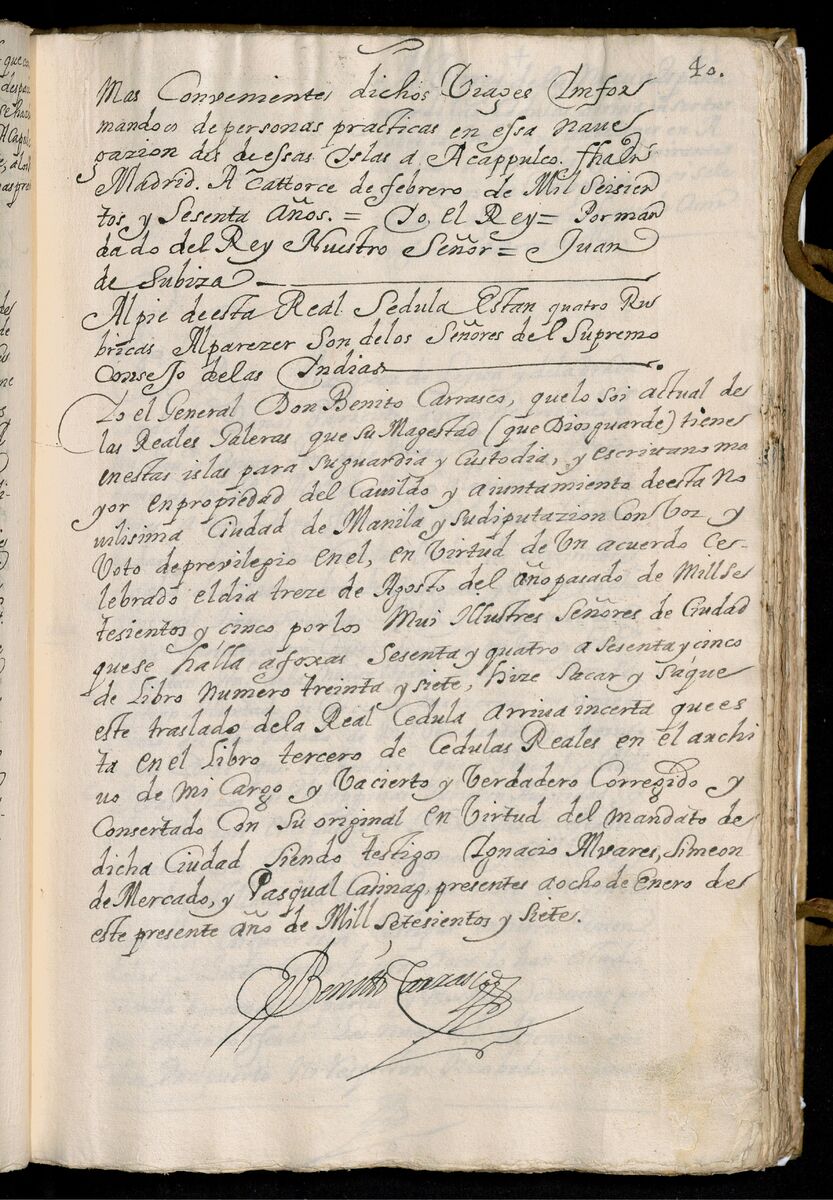 40.
Mas Convenientes dichos Viages Imfor
mandoos de personas practicas en essa nave
gazion des de essas Islas a Acappulco. fha en
Madrid. A Cattorce de febrero de Mil Seisien
tos y Sesenta Años. = Io, el Rey = Por man
dado del Rey Nuestro Señor = Juan
de Subiza
Al pie de esta Real Sedula Estan quatro Ru
bricas Al parezer Son de los Señores del Supremo
Consejo de las Indias
Io el General Don Benito Carrasco, que lo soi actual de
las Reales Galeras que su Magestad (que Dios guarde) tiene
en estas islas para su guardia y Custodia, y escriuano ma
yor en propiedad del Cauildo y aiuntamiento de esta No
uilisima Ciudad de Manila y su diputazion Con Voz y
Voto de previlegio en el, en Virtud de Vn acuerdo Ce-
lebrado el dia treze de Agosto del año pasado de Mill Se
tesientos y cinco por los Mui Illustres Señores de Ciudad
que se halla a foxas Sesenta y quatro a sesenta y cinco
de Libro numero treinta y siete, hize Sacar y Saque
este traslado de la Real Cedula arriua incerta que es
ta en el Libro tercero de Cedulas Reales en el archi
uo de mi Cargo y Va cierto y Verdadero Corregido y
Consertado Con su original en Virtud del mandato de
dicha Ciudad siendo testigos Ignacio Alvares, Simeon
de Mercado, y Pasqual Casinag, presentes a ocho de Enero de
este presente año de Mill Setesientos y siete.
Benitto Carrasco